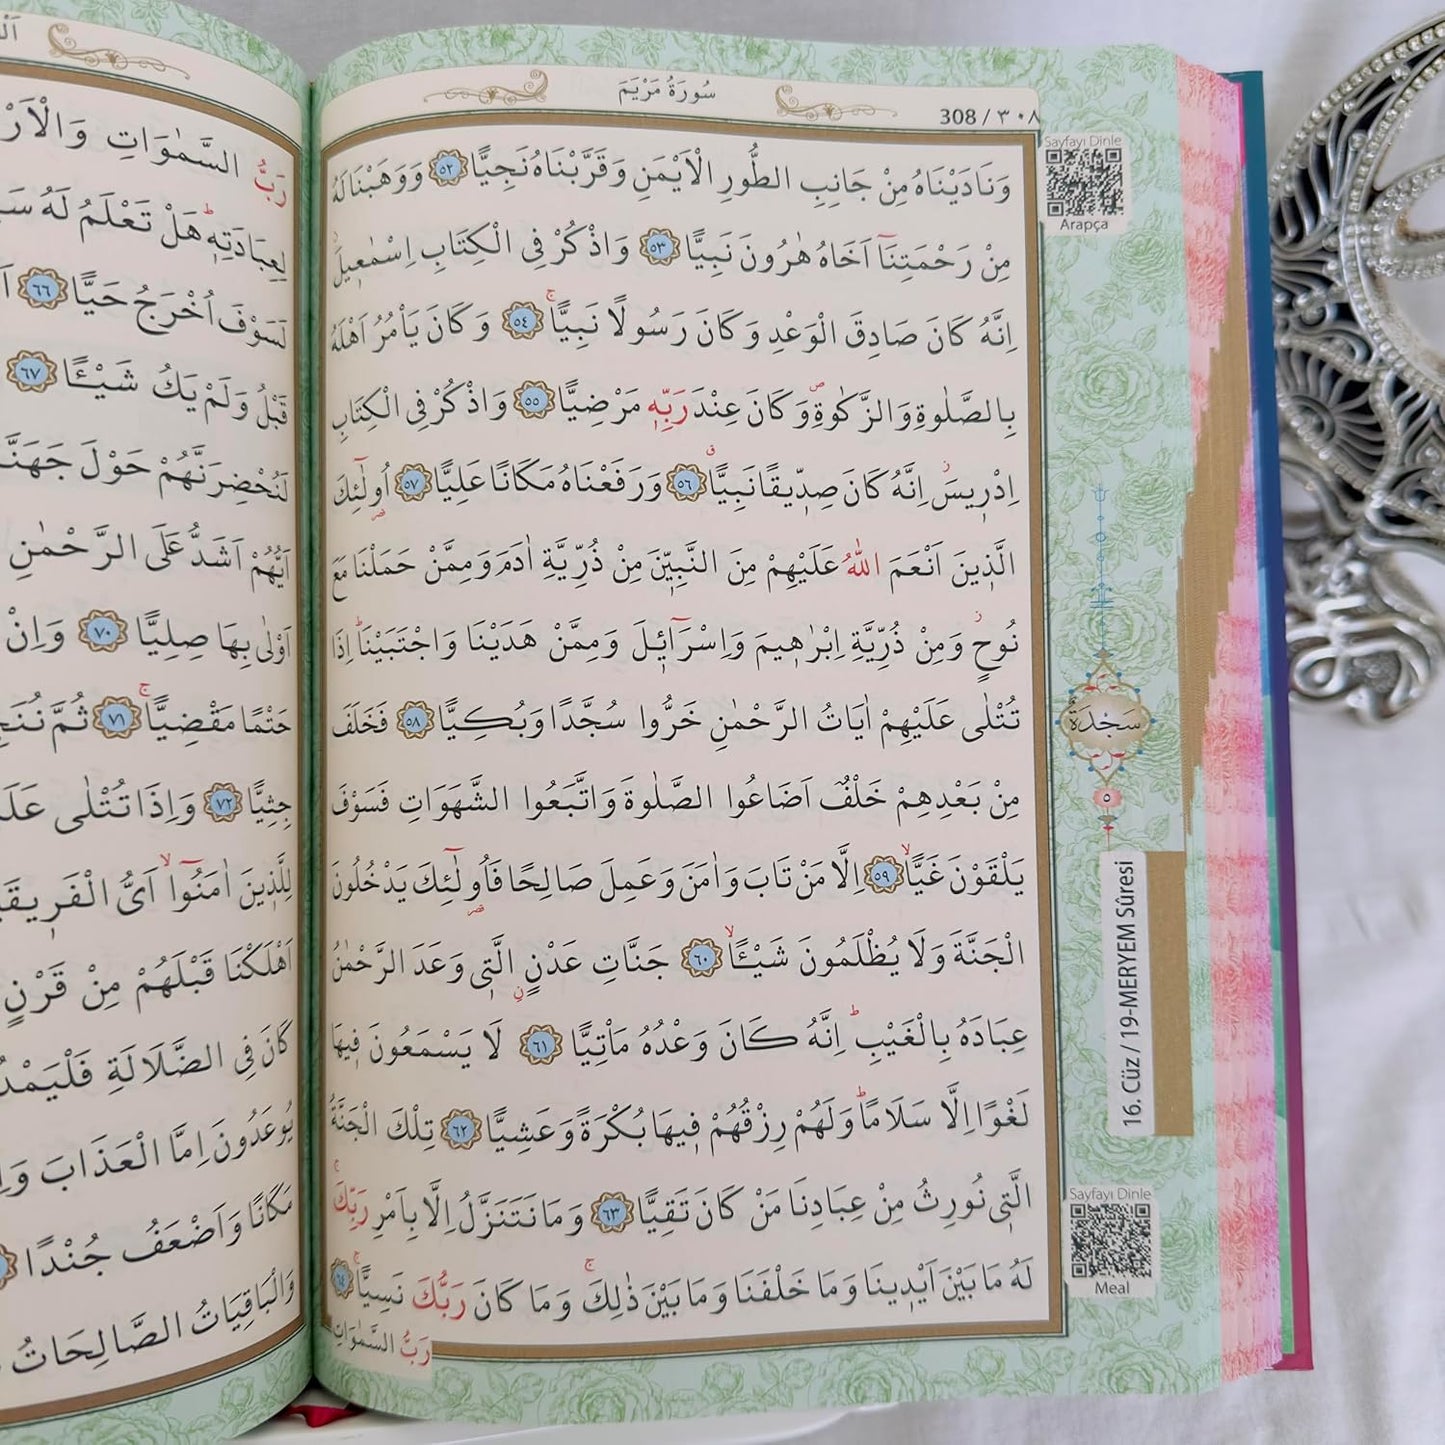 سُورَةُ مَرْيَمَ
308 / ٣٠٨
وَنَادَيْنَاهُ مِنْ جَانِبِ الطُّورِ الْاَيْمَنِ وَقَرَّبْنَاهُ نَجِيًّا ٥٢ وَوَهَبْنَا لَهُ
مِنْ رَحْمَتِنَٓا اَخَاهُ هٰرُونَ نَبِيًّا ٥٣ وَاذْكُرْ فِي الْكِتَابِ اِسْمٰع۪يلَۘ
اِنَّهُ كَانَ صَادِقَ الْوَعْدِ وَكَانَ رَسُولًا نَبِيًّاۚ ٥٤ وَكَانَ يَأْمُرُ اَهْلَهُ
بِالصَّلٰوةِ وَالزَّكٰوةِۖ وَكَانَ عِنْدَ رَبِّه۪ مَرْضِيًّا ٥٥ وَاذْكُرْ فِي الْكِتَابِ
اِدْر۪يسَۘ اِنَّهُ كَانَ صِدّ۪يقًا نَبِيًّاۗ ٥٦ وَرَفَعْنَاهُ مَكَانًا عَلِيًّا ٥٧ اُو۬لٰٓئِكَ
الَّذ۪ينَ اَنْعَمَ اللّٰهُ عَلَيْهِمْ مِنَ النَّبِيّ۪نَ مِنْ ذُرِّيَّةِ اٰدَمَ وَمِمَّنْ حَمَلْنَا مَعَ
نُوحٍۘ وَمِنْ ذُرِّيَّةِ اِبْرٰه۪يمَ وَاِسْرَٓائ۪لَ وَمِمَّنْ هَدَيْنَا وَاجْتَبَيْنَاۜ اِذَا
تُتْلٰى عَلَيْهِمْ اٰيَاتُ الرَّحْمٰنِ خَرُّوا سُجَّدًا وَبُكِيًّا ٥٨ فَخَلَفَ
مِنْ بَعْدِهِمْ خَلْفٌ اَضَاعُوا الصَّلٰوةَ وَاتَّبَعُوا الشَّهَوَاتِ فَسَوْفَ
يَلْقَوْنَ غَيًّاۙ ٥٩ اِلَّا مَنْ تَابَ وَاٰمَنَ وَعَمِلَ صَالِحًا فَاُو۬لٰٓئِكَ يَدْخُلُونَ
الْجَنَّةَ وَلَا يُظْلَمُونَ شَيْـًٔاۙ ٦٠ جَنَّاتِ عَدْنٍ الَّت۪ي وَعَدَ الرَّحْمٰنُ
عِبَادَهُ بِالْغَيْبِۜ اِنَّهُ كَانَ وَعْدُهُ مَأْتِيًّا ٦١ لَا يَسْمَعُونَ ف۪يهَا
لَغْوًا اِلَّا سَلَامًاۜ وَلَهُمْ رِزْقُهُمْ ف۪يهَا بُكْرَةً وَعَشِيًّا ٦٢ تِلْكَ الْجَنَّةُ
الَّت۪ي نُورِثُ مِنْ عِبَادِنَا مَنْ كَانَ تَقِيًّا ٦٣ وَمَا نَتَنَزَّلُ اِلَّا بِاَمْرِ رَبِّكَۚ
لَهُ مَا بَيْنَ اَيْد۪ينَا وَمَا خَلْفَنَا وَمَا بَيْنَ ذٰلِكَۚ وَمَا كَانَ رَبُّكَ نَسِيًّاۚ ٦٤
رَبُّ السَّمٰوَاتِ
Sayfayı Dinle
Arapça
سَجْدَةٌ
٥
16. Cüz / 19-MERYEM Sûresi
Sayfayı Dinle
Meal
رَبُّ السَّمٰوَاتِ
لِعِبَادَتِه۪ۜ هَلْ تَعْلَمُ لَهُ
لَسَوْفَ اُخْرَجُ حَيًّا ٦٦
قَبْلُ وَلَمْ يَكُ شَيْـًٔا ٦٧
لَنُحْضِرَنَّهُمْ حَوْلَ
اَيُّهُمْ اَشَدُّ عَلَى الرَّحْمٰنِ
اَوْلٰى بِهَا صِلِيًّا ٧٠ وَاِنْ
حَتْمًا مَقْضِيًّاۚ ٧١ ثُمَّ
جِثِيًّا ٧٢ وَاِذَا تُتْلٰى
لِلَّذ۪ينَ اٰمَنُٓواۙ اَيُّ
اَهْلَكْنَا قَبْلَهُمْ مِنْ قَرْنٍ
كَانَ فِي الضَّلَالَةِ
يُوعَدُونَ اِمَّا الْعَذَابَ
مَكَانًا وَاَضْعَفُ جُنْدًا
وَالْبَاقِيَاتُ الصَّالِحَاتُ